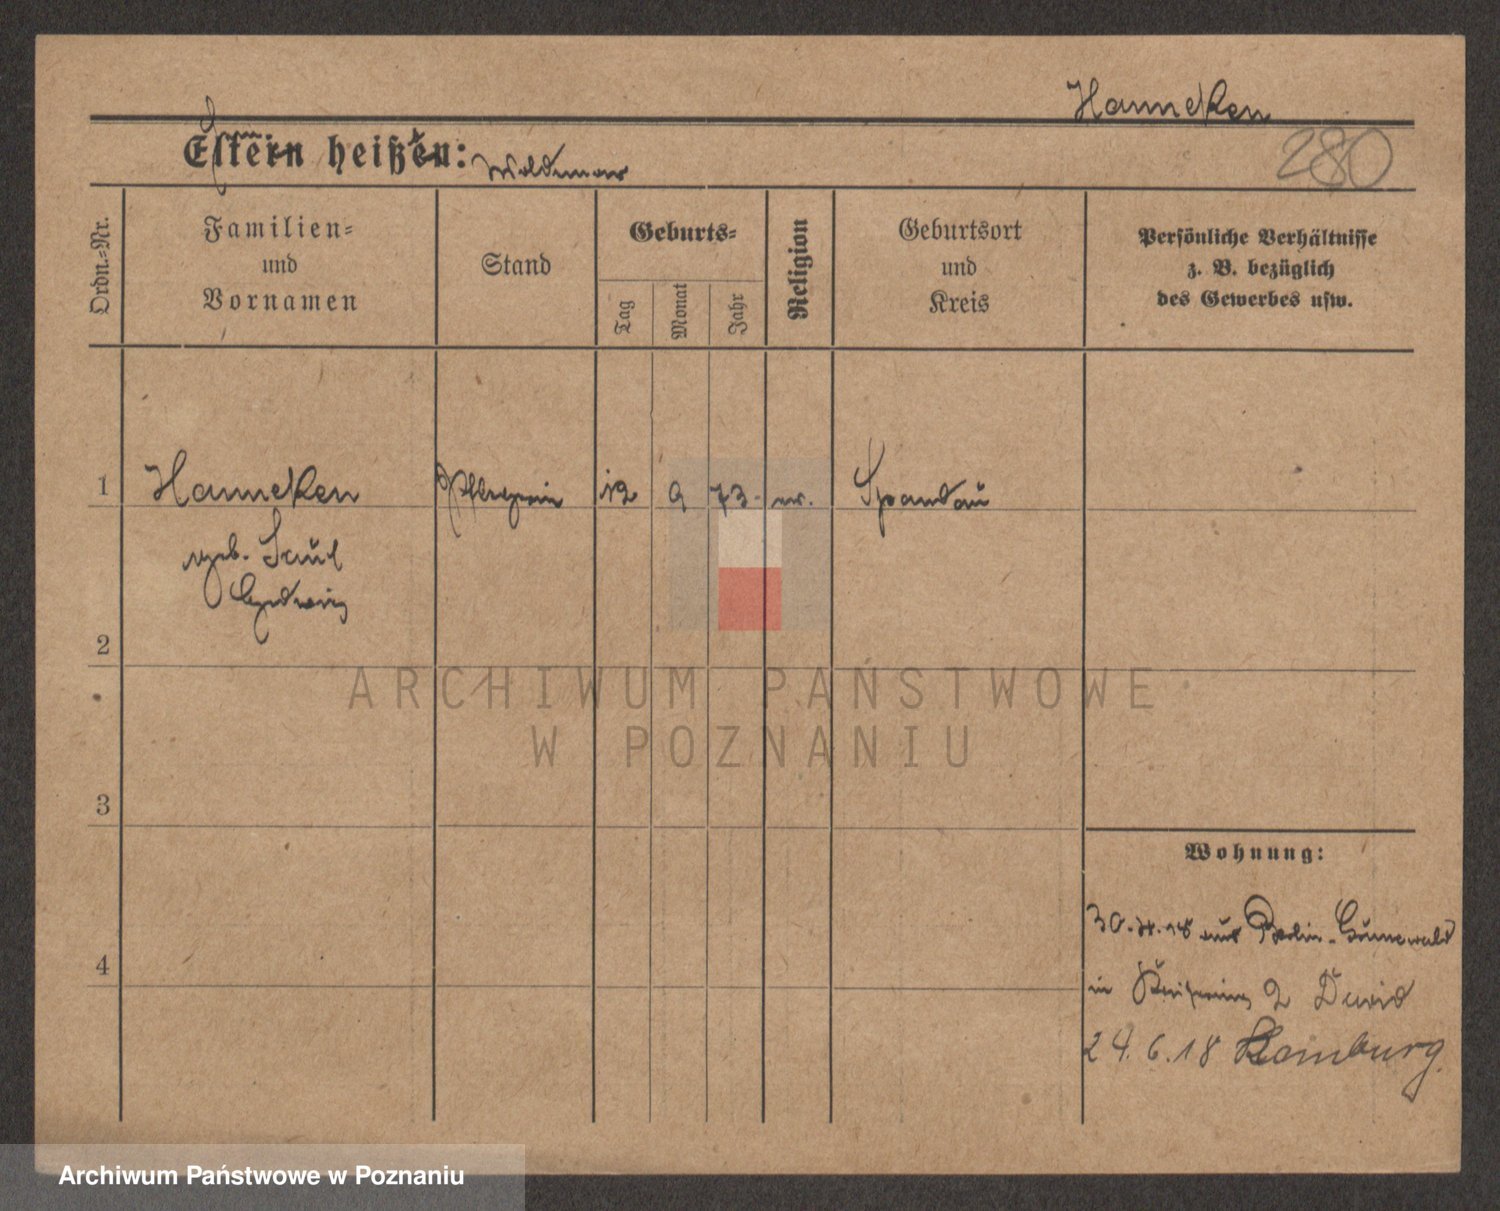 Hanneken
Eltern heißen: Woldemar
280
Ordn.=Nr.
Familien=
und
Vornamen
Stand
Geburts=
Tag
Monat
Jahr
Religion
Geburtsort
und
Kreis
Persönliche Verhältnisse
z. B. bezüglich
des Gewerbes usw.
1
Hanneken
12 9 73. ev. Spandau
geb.
Hedwig
2
3
4
Wohnung:
aus Berlin-Grunewald
in 2
24.6.18 Hamburg.
ARCHIWUM PAŃSTWOWE
W POZNANIU
Archiwum Państwowe w Poznaniu